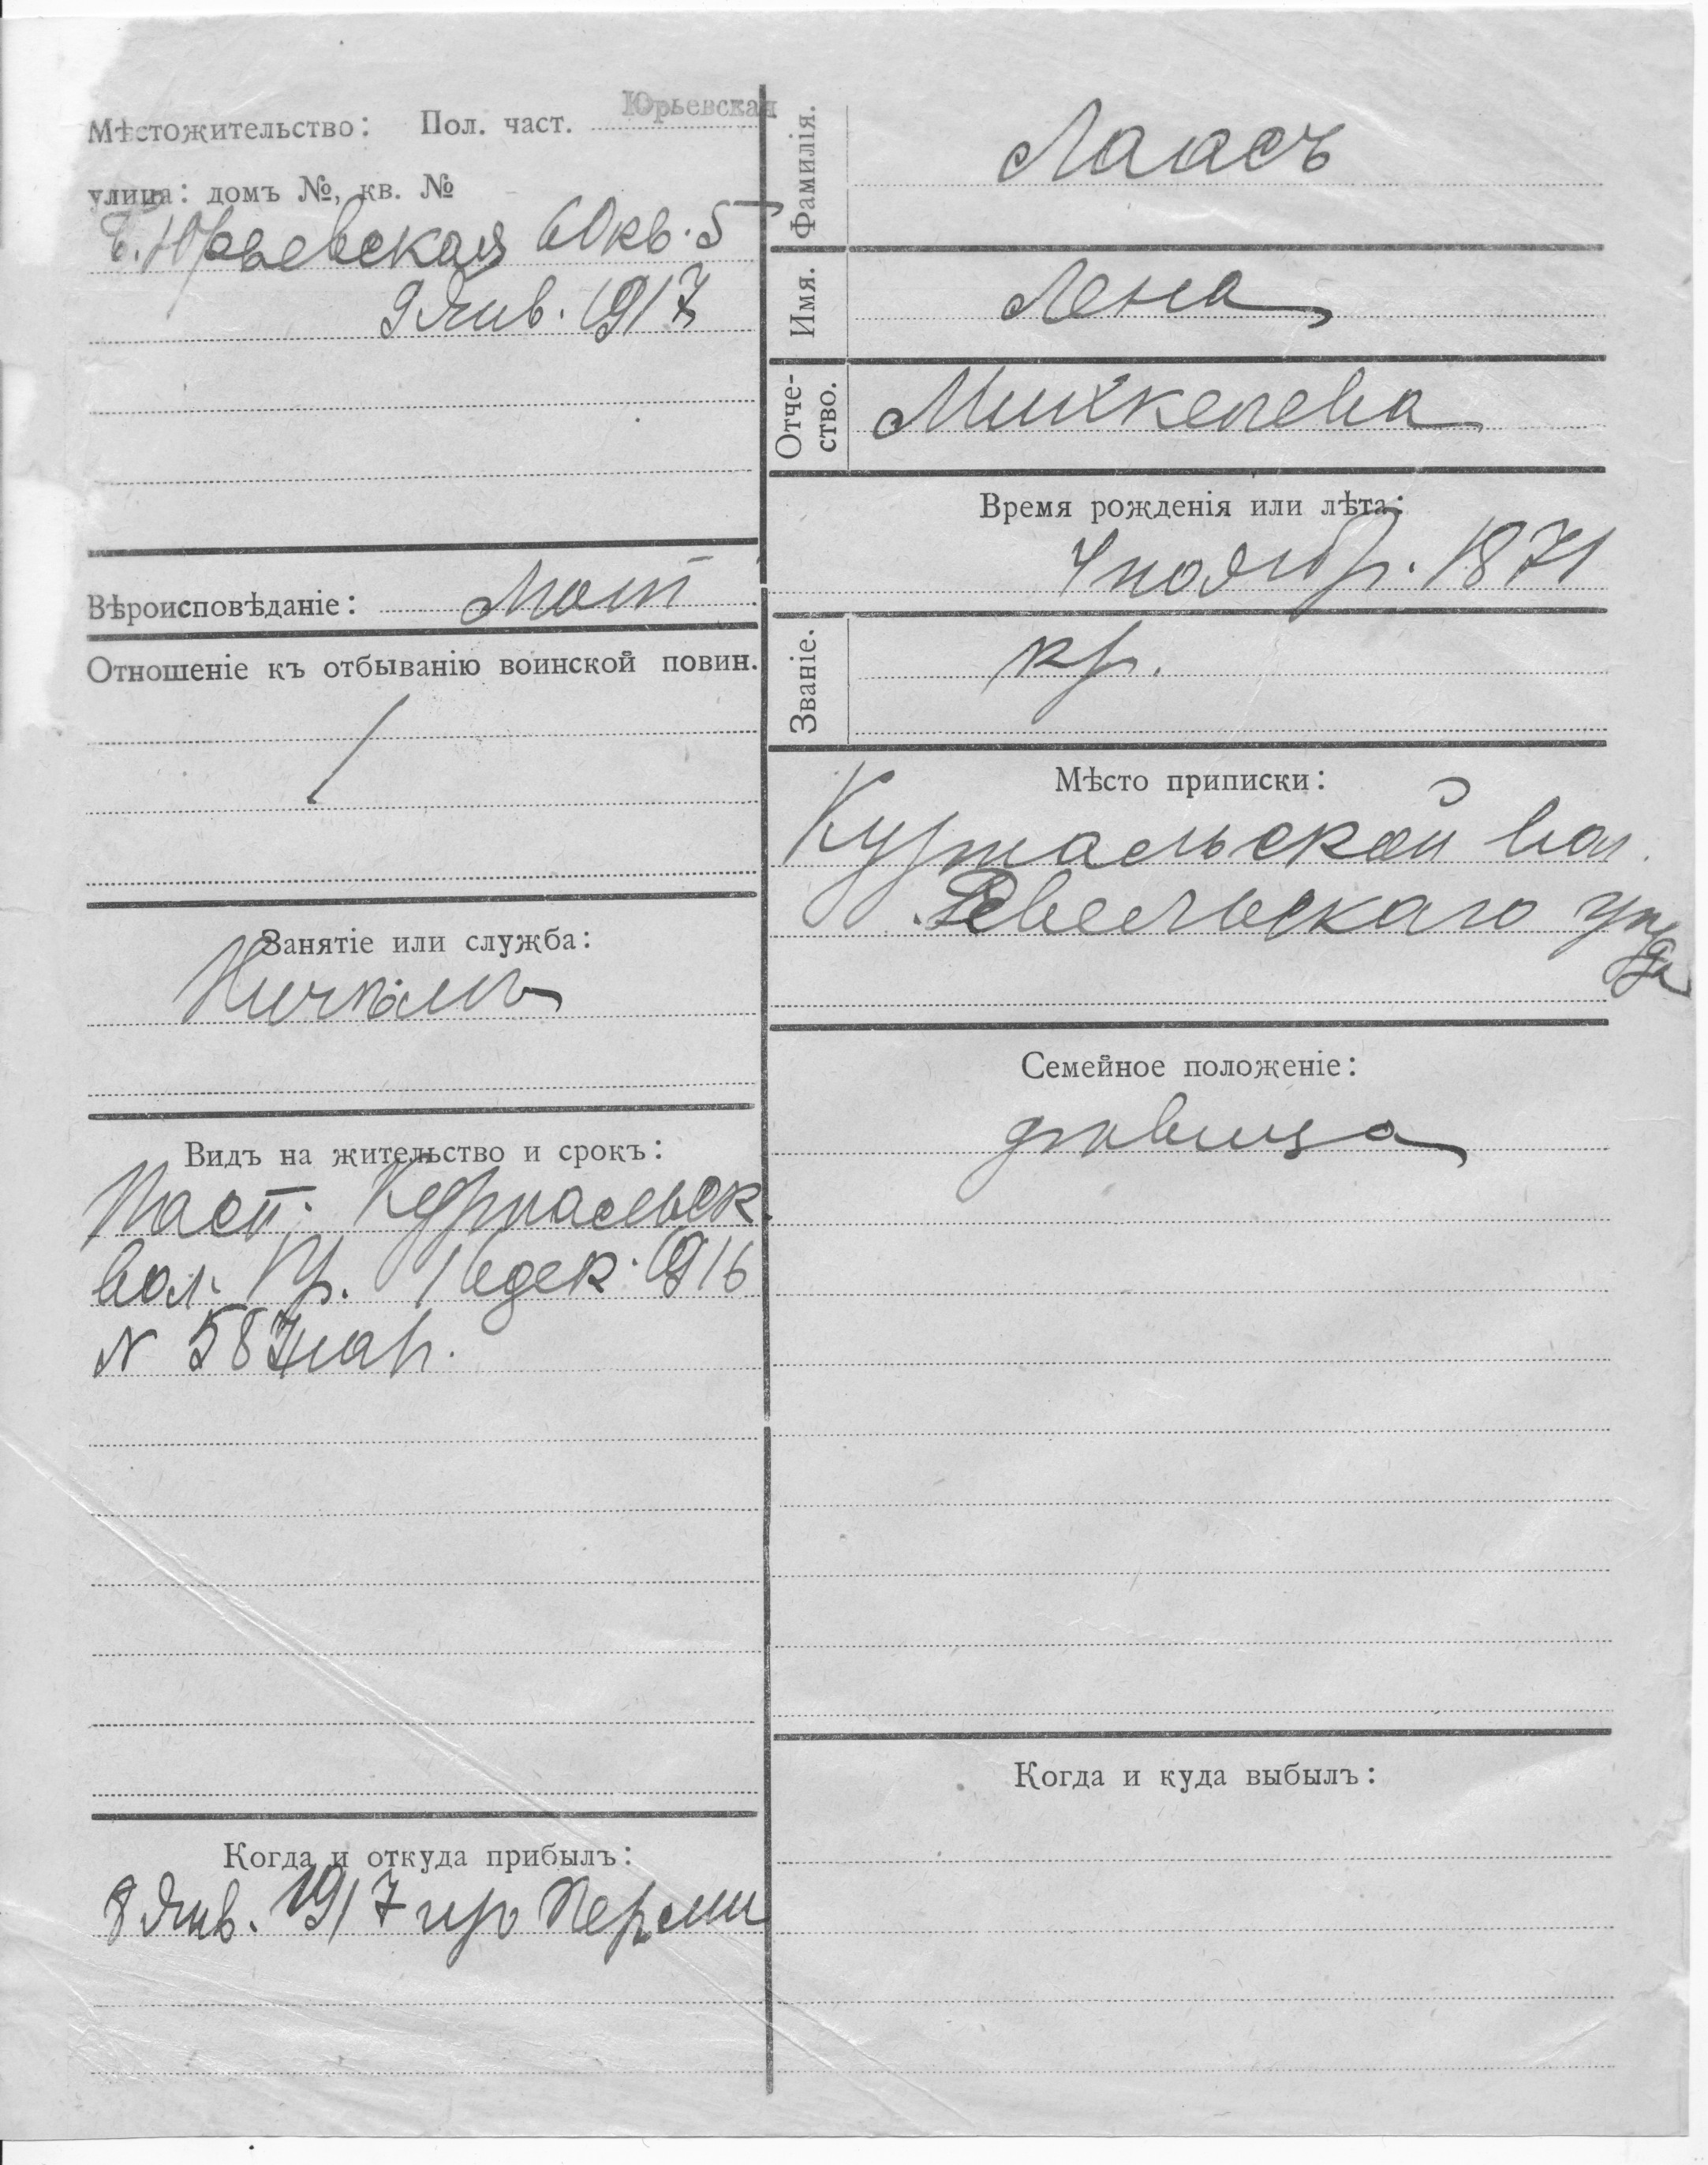 Мѣстожительство: Пол. част. Юрьевская
улица: домъ №, кв. №
Б. Юрьевская 60 кв. 5
9 Янв. 1917
Вѣроисповѣданіе: Лют
Отношеніе къ отбыванію воинской повин.
Занятіе или служба:
Видъ на жительство и срокъ:
Пасп. Куртальск.
вол. Пр. 16 дек. 1916
N 587
Когда и откуда прибылъ:
8 Янв. 1917 Перми
Фамилія. Лаасъ
Имя. Лена
Отче-
ство. Михкелева
Время рожденія или лѣта:
4 ноябр. 1871
Званіе. кр.
Мѣсто приписки:
Куртальской вол.
Ревельскаго уѣзда
Семейное положеніе:
дѣвица
Когда и куда выбылъ: